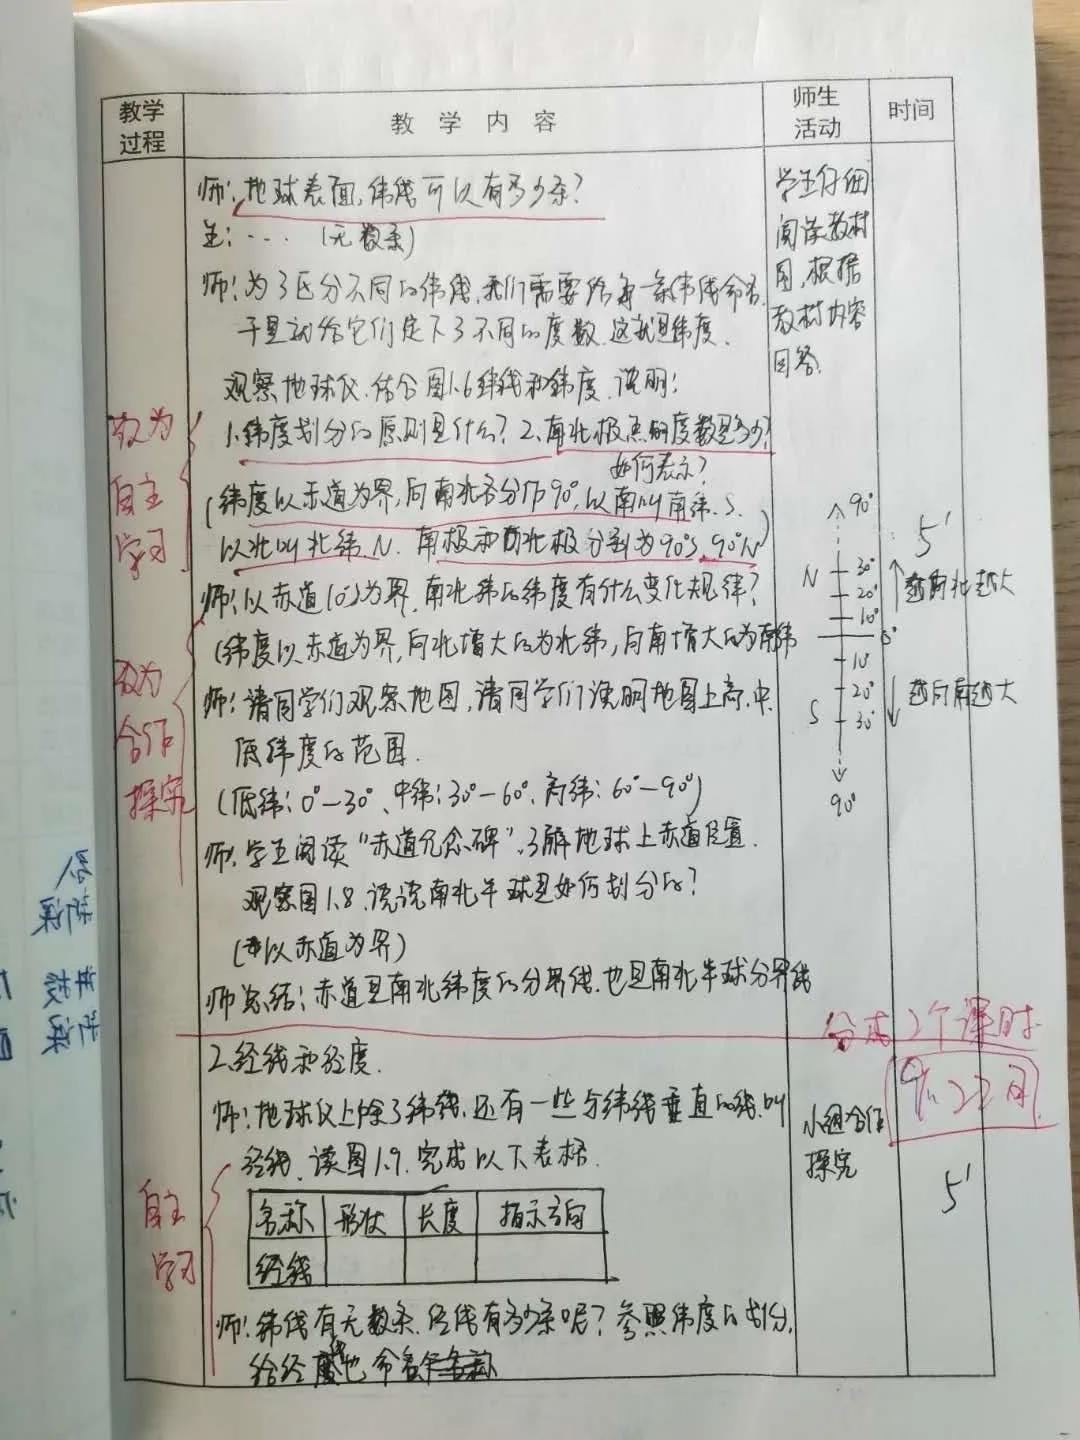 教学过程
教学内容
师生活动
时间
师：地球表面，纬线可以有多少条？
生：…… （无数条）
师：为了区分不同的纬线，我们需要给每一条纬线命名，
于是就给它们定下了不同的度数，这就是纬度．
观察地球仪，结合图1.6纬线和纬度，说明：
1.纬度划分的原则是什么？2.南北极点的度数是多少？
如何表示？
（纬度以赤道为界，向南北各分作90°，以南叫南纬．S．
以北叫北纬．N．南极和北极分别为90°S．90°N）
师：以赤道（0°）为界，南北纬的纬度有什么变化规律？
（纬度以赤道为界，向北增大的为北纬，向南增大的为南纬
师：请同学们观察地图，请同学们说明地图上高、中、
低纬度的范围．
（低纬：0°—30°、中纬：30°—60°、高纬：60°—90°）
师：学生阅读“赤道纪念碑”，了解地球上赤道位置．
观察图1.8，说说南北半球是如何划分的？
（以赤道为界）
师总结：赤道是南北纬度的分界线，也是南北半球分界线
2.经线和经度．
师：地球仪上除了纬线，还有一些与纬线垂直的线，叫
经线，读图1.9，完成以下表格．
名称 形状 长度 指示方向
经线
师：纬线有无数条，经线有多少条呢？参照纬度的划分，
给经 也命名
学生仔细
阅读教材
图，根据
教材内容
回答．
90°
N
30°
20°
10°
0°
10°
20°
S
30°
90°
5'
越向北越大
越向南越大
小组合作
探究
5'
改为
自主
学习
改为
合作
探究
自主
学习
分成2个课时